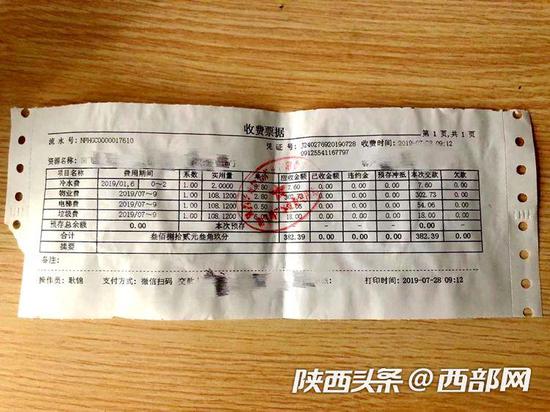 收费票据
第 1 页,共 1 页
流水号: NPHGC0000017610
凭证号: J24027692019072809125541167797
收费时间: 2019-07-28 09:12
资源名称:
项目名称 费用期间 系数 实用量 单价 应收金额 已收金额 违约金 预存冲抵 本次交款 欠款
冷水费 2019/01,6 0~2 1.00 2.0000 7.60 0.00 0.00 0.00 7.60 0.00
物业费 2019/07~9 1.00 108.1200 2.80 0.00 0.00 0.00 302.73 0.00
电梯费 2019/07~9 1.00 108.1200 0.50 0.00 0.00 0.00 54.06 0.00
垃圾费 2019/07~9 1.00 18.00 0.00 0.00 0.00 18.00 0.00
预存总余额 0.00 本次预存 0.00
合计 叁佰捌拾贰元叁角玖分 382.39 0.00 0.00 0.00 382.39 0.00
摘要
备注:
操作员: 耿锦 支付方式: 微信扫码 交款 打印时间: 2019-07-28 09:12
陕西头条@西部网